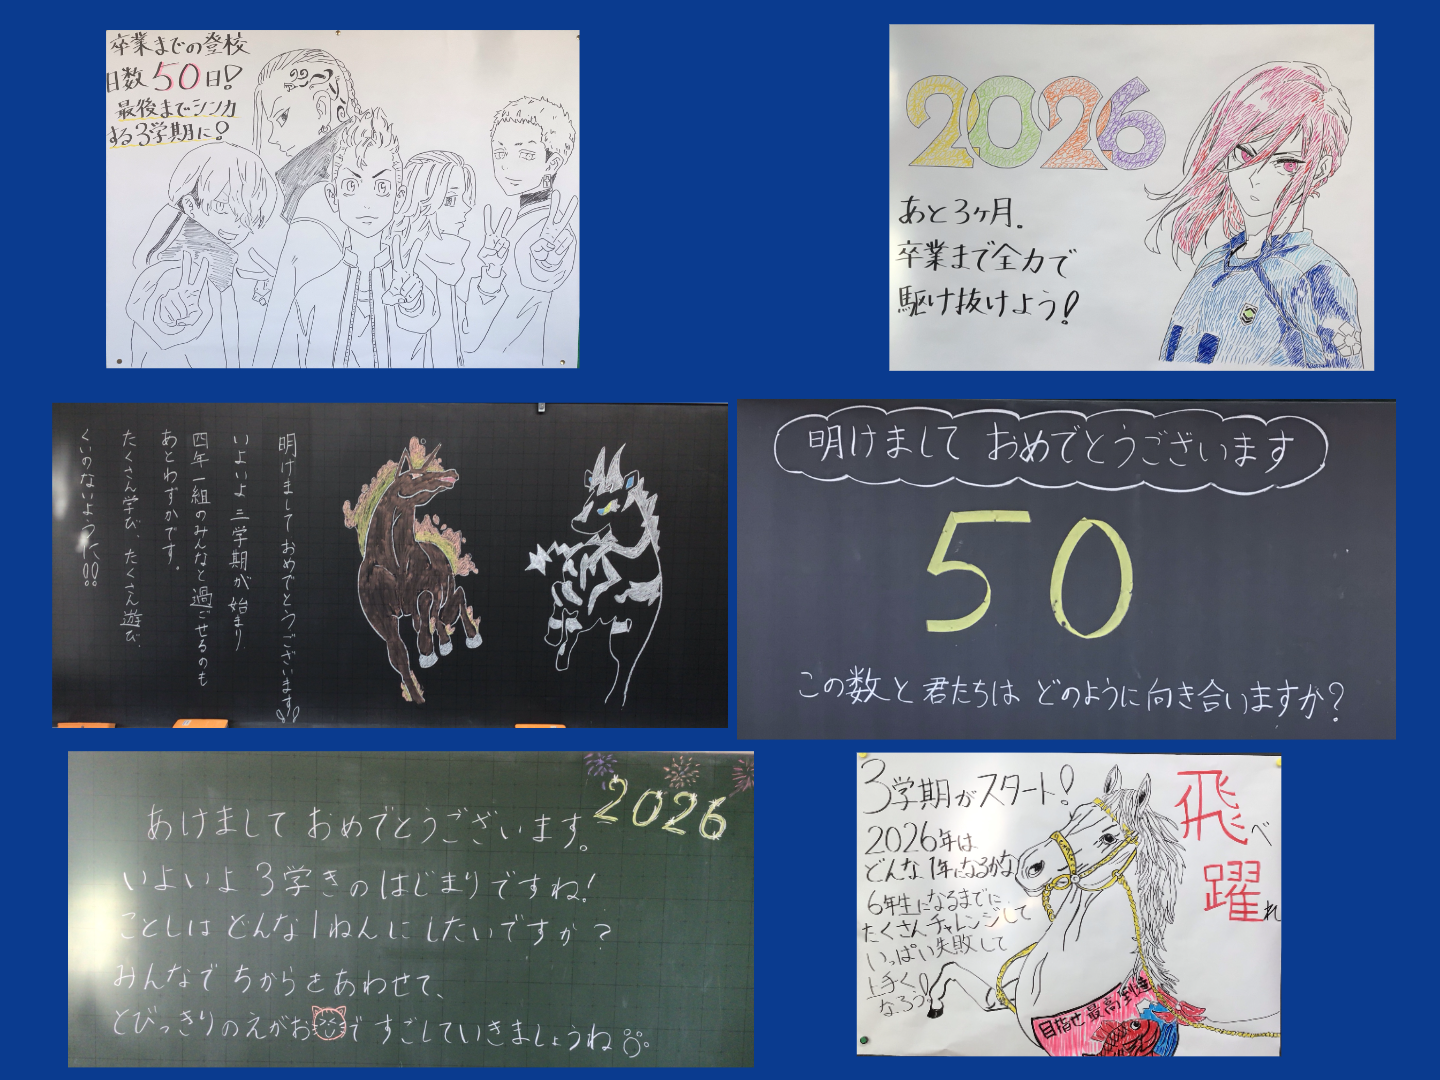 卒業までの登校
日数50日!
最後までシンカ
する3学期に!
2026
あと3ヶ月.
卒業まで全力で
駆け抜けよう!
明けましておめでとうございます!!
いよいよ三学期が始まり
四年一組のみんなと過ごせるのも
あとわずかです。
たくさん学び、たくさん遊び、
くいのないように!!
明けまして おめでとうございます
50
この数と君たちは どのように向き合いますか?
2026
あけまして おめでとうございます。
いよいよ 3学きの はじまりですね!
ことしは どんな 1ねんに したいですか?
みんなで ちからをあわせて、
とびっきりのえがおで すごしていきましょうね
3学期がスタート!
2026年は
どんな1年になるかな
6年生になるまでに
たくさんチャレンジして
いっぱい失敗して
上手く
なろう!
飛べ
躍れ
目指せ最高到達